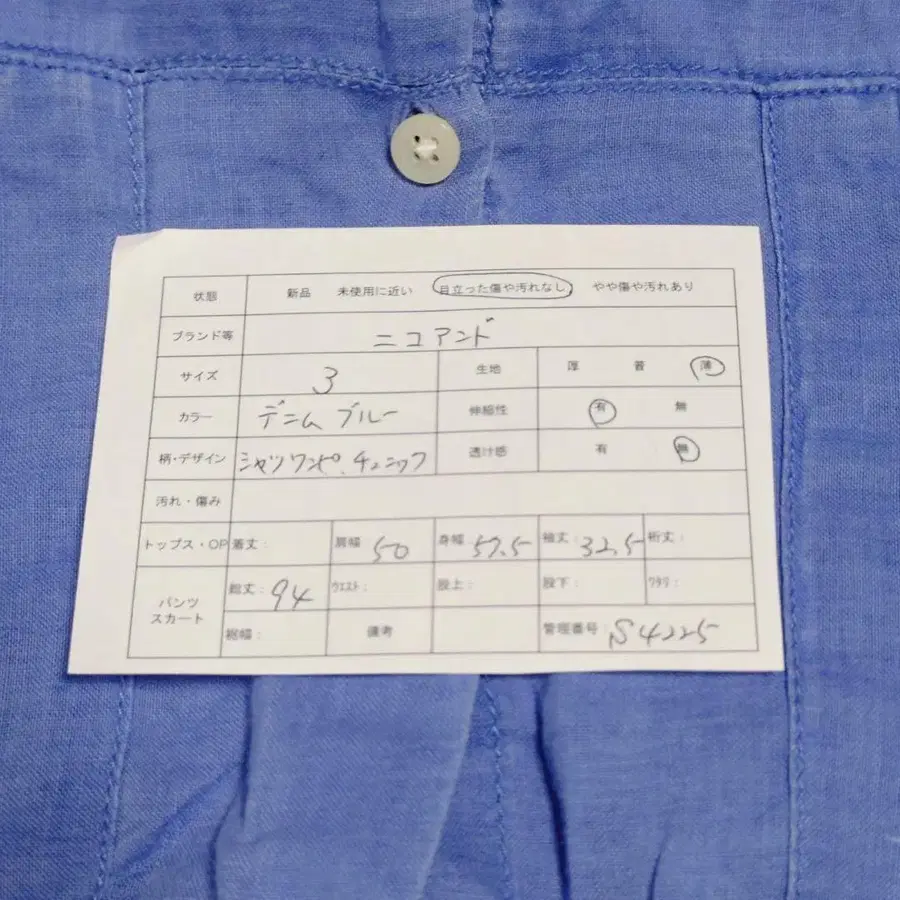 状態 新品 未使用に近い 目立った傷や汚れなし やや傷や汚れあり
ブランド等 ニコアンド
サイズ 3 生地 厚 普 薄
カラー デニムブルー 伸縮性 有 無
柄・デザイン シャツワンピ、チュニック 透け感 有 無
汚れ・傷み
トップス・OP 着丈: 肩幅 50 身幅 57.5 袖丈: 32.5 裄丈:
パンツ スカート 総丈: 94 ウエスト: 股上: 股下: ワタリ:
裾幅: 備考 管理番号: S4225